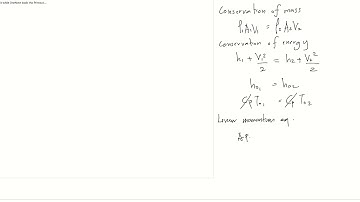 Conservation of mass
ρ₁A₁V₁ = ρ₂A₂V₂
Conservation of energy
h₁ + V₁²/2 = h₂ + V₂²/2
h₀₁ = h₀₂
Cp T₀₁ = Cp T₀₂
Linear momentum eq.